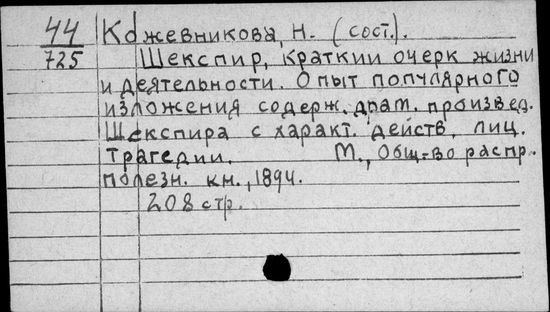 44 Кожевникова, Н. (сост.).
725 Шекспир, краткий очерк жизни
и деятельности. Опыт популярного
изложения содерж. драт. произвед.
Шекспира с характ. действ. лиц.
трагедии. М., Общ-во распр.
полезн. кн., 1894.
208 стр.